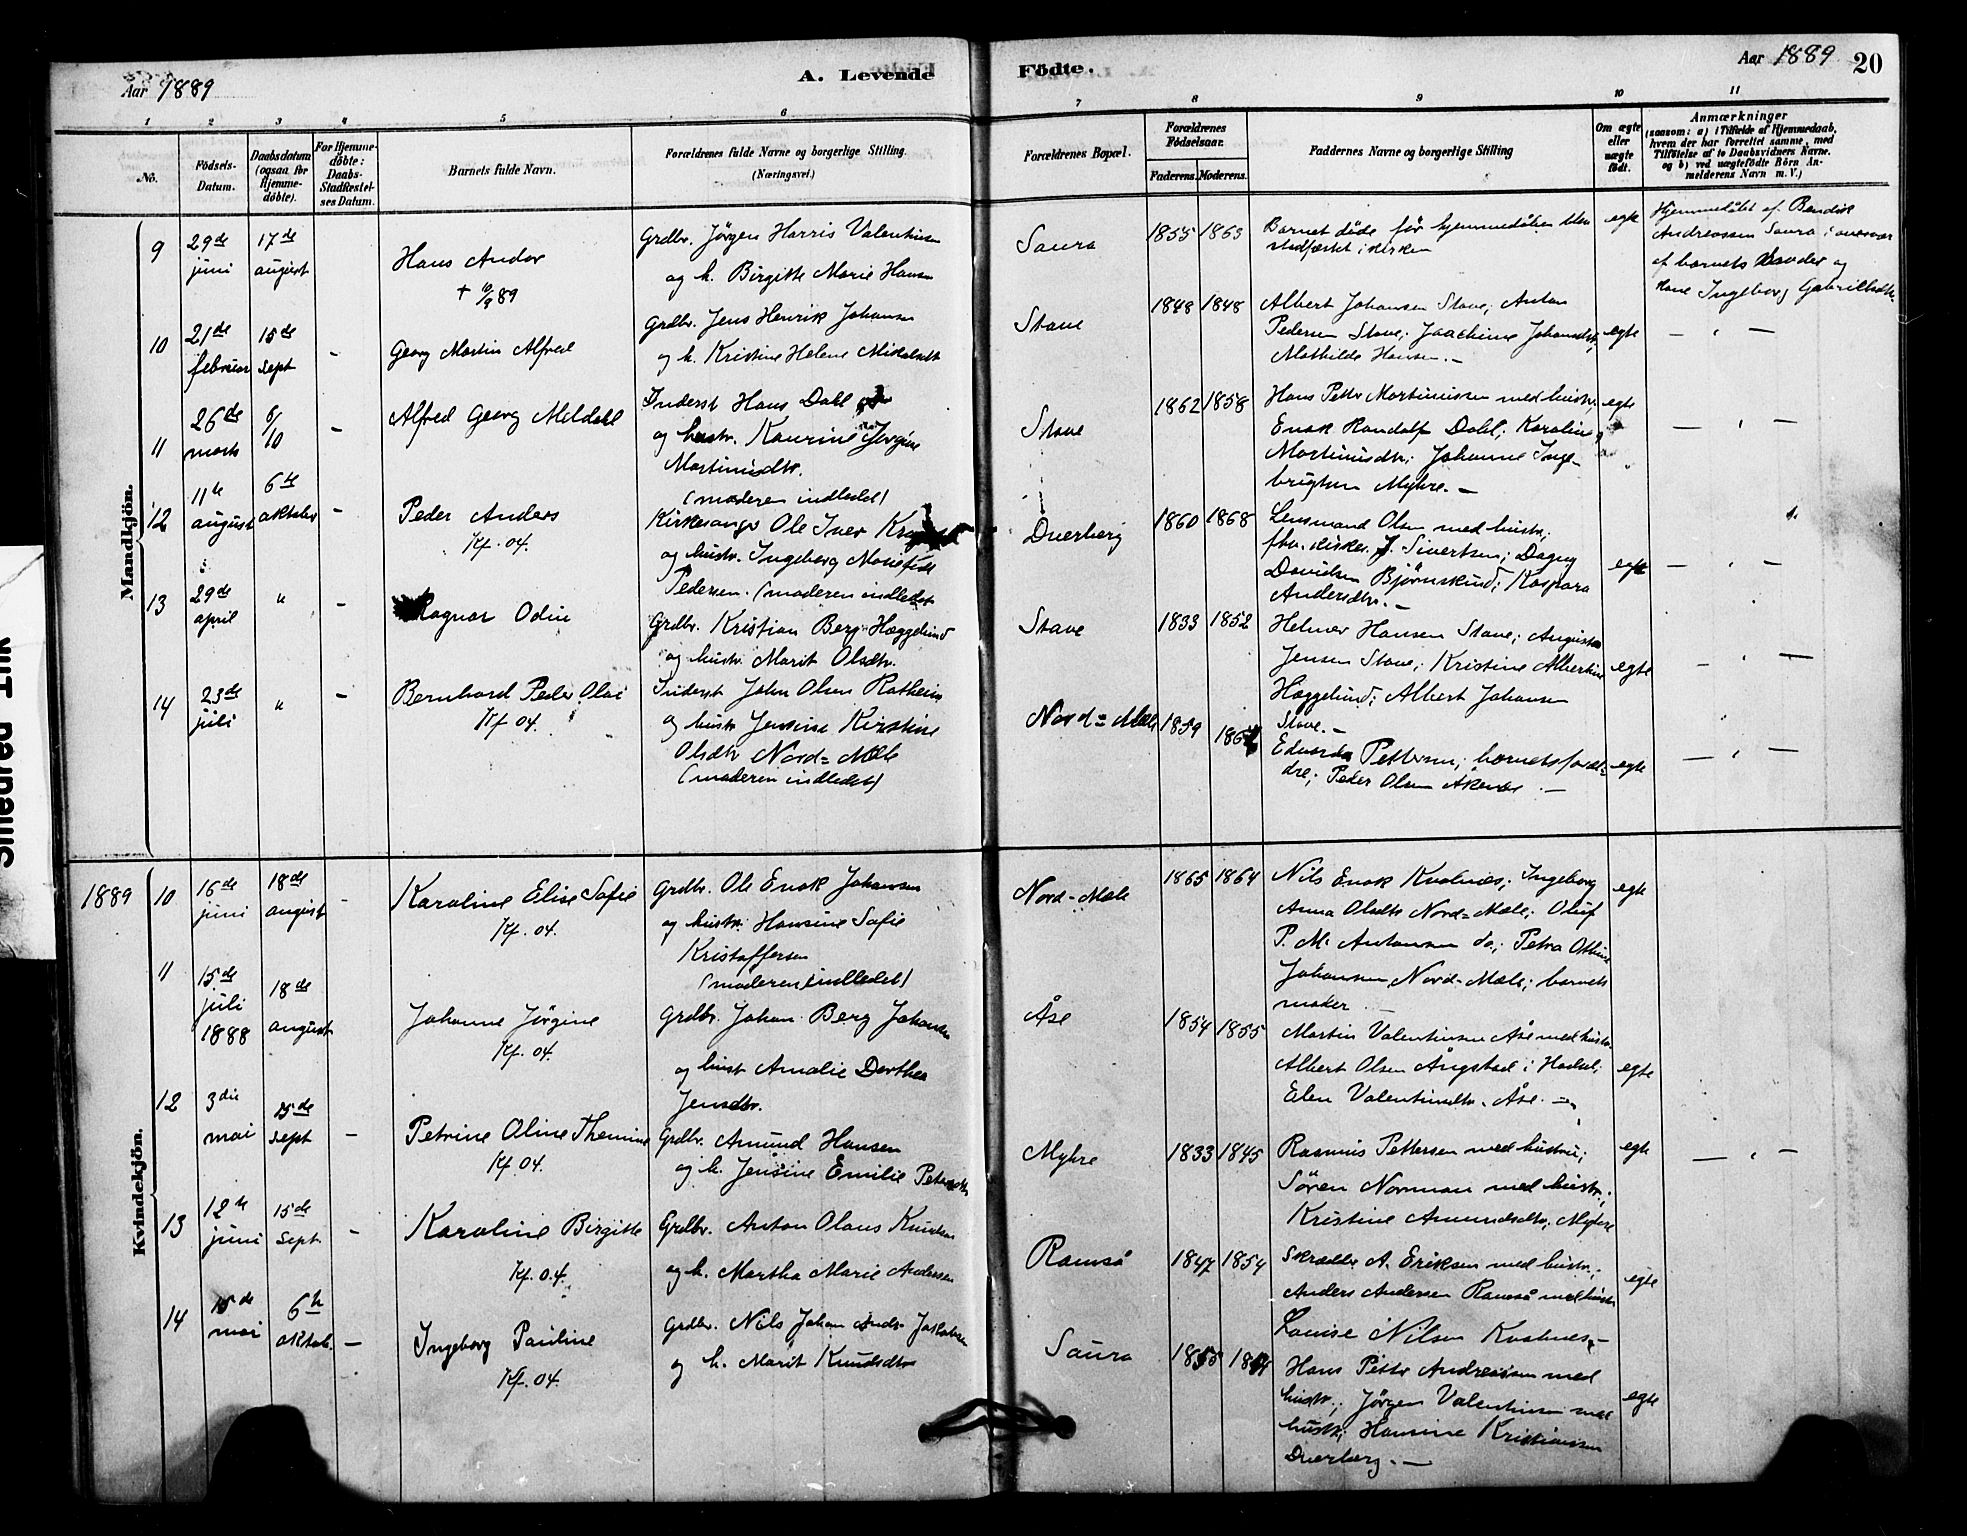 Aar 1889
A. Levende
Födte.
Aar 1889
20
1 2 3 4 5 6 7 8 9 10 11
No.
Födsels-Datum.
Daabsdatum (ogsaa for Hjemme-døbte).
For Hjemme-døbte: Daabs-Stadfæstel-ses Datum.
Barnets fulde Navn.
Forældrenes fulde Navne og borgerlige Stilling. (Næringsvei.)
Forældrenes Bopæl.
Forældrenes Födselsaar.
Faderens. Moderens.
Faddernes Navne og borgerlige Stilling
Om ægte eller uægte födt.
Anmærkninger
(saasom: a) i Tilfælde af Hjemmedaab, hvem der har forrettet samme, med Tilföielse af to Daabsvidners Navne, og b) ved uægtefödte Börn An-melderens Navn m. V.)
Mandkjön.
9
29de juni
17de august
Hans Andor
+ 10/8 89
Grdbr. Jörgen Harris Valentinsen
og h. Birgitte Marie Hansen
Saura
1855 1863
Barnet döde för hjemmedåben blev
stadfæstet i kirken
egte
Hjemmedöbt af Bendik
Andreassen Saura i overvær
af barnets fader og
kone Ingeborg
10
21de februar
15de sept
-
Georg Martin Alfred
Grdbr. Jens Henrik Johansen
og h. Kristine Helene
Stave
1848 1848
Albert Johansen Stave; Anton
Pedersen Stave;
Mathilde Hansen. -
egte
- " -
11
26de marts
6/10
-
Alfred Georg Meldahl
Inderst Hans Dahl
og hustr. Kaurine Jörgine
Martinusdtr.
(moderen indledet)
Stave
1862 1858
Hans Petter Martinussen med hustr;
Enok Randolf Dahl; Karoline
Martinusdtr; Johanne Inge-
brigtsen Myhre. -
egte
- " -
12
11te august
6te oktober
-
Peder Anders
Kf. 04.
Kirkesanger Ole Iver
og hustr. Ingeborg
Pedersen. (moderen indledet
Dverberg
1860 1868
Lensmand Olsen med hustr;
J. Sivertsen; Dagny
Davidsen Björnskind; Kaspara
Andersdtr. -
egte
- " -
13
29de april
"
-
Ragnar Odin
Grdbr. Kristian Berg Hæggelund
og hustr. Marit Olsdtr.
Stave
1833 1852
Helmer Hansen Stave; Augusta
Jensen Stave; Kristine Albertine
Hæggelund; Albert Johansen
Stave. -
egte
- " -
14
23de juli
"
-
Bernhard Peder Olai
Kf 04.
Inderst John Olsen
og hustr Jensine Kirstine
Olsdtr Nord=Mæle
(moderen indledet)
Nord=Mæle
1859
Petterson; barnets foræl=
dre; Peder Olsen Åkenes. -
egte
- " -
Kvindekjön.
1889
10
16de juni
18de august
-
Karoline Elise Sofie
Kf. 04.
Grdbr. Ole Enok Johansen
og hustr. Hansine Sofie
Kristoffersen
(moderen indledet)
Nord-Mæle
1865 1864
Nils Enok Kvalnes; Ingeborg
Anna Olsdtr Nord=Mæle; Oluf
P. M. Antonsen do; Petra
Johansen, Nord-Mæle; barnets
moder. -
egte
11
15de juli 1888
18de august
Johanne Jörgine
Kf. 04.
Grdbr. Johan Berg Johansen
og hustr Amalie Dorthea
Jensdtr.
Åse
1854 1855
Martin Valentinsen Åse med hustr.
Albert Olsen Ångstad i Hadsel;
Elen Valentinsdtr. Åse. -
egte
12
3die mai
15de sept
-
Petrine Oline Themine
Kf 04.
Grdbr. Amund Hansen
og h. Jensine Emilie
Myhre
1833 1845
Rasmus Pettersen med hustru;
Sören Norman med hustr;
Kristine Amundsdtr; Myhre
egte
- " -
13
12te juni
15de Sept.
-
Karoline Birgitte
Kf. 04.
Grdbr. Anton Olaus Knudsen
og h. Martha Marie Andersen
Ramså
1847 1854
Skrædder A. Eriksen med hustr.;
Anders Andersen Ramså med hustr
Louise Nilsen Kvalnes -
egte
14
15de mai
6te oktob.
-
Ingeborg Pauline
Kf. 04.
Grdbr. Nils Johan Jakobsen
og h. Marit Knudsdtr
Saura
Hans Petter Andreassen med
hustr.; Jörgen Valentinsen med
hustr; Hansine Kristiansen
Dverberg. -
egte